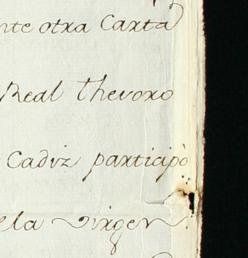 nte otra Carta
Real thesoro
Cadiz participò
ela virgen